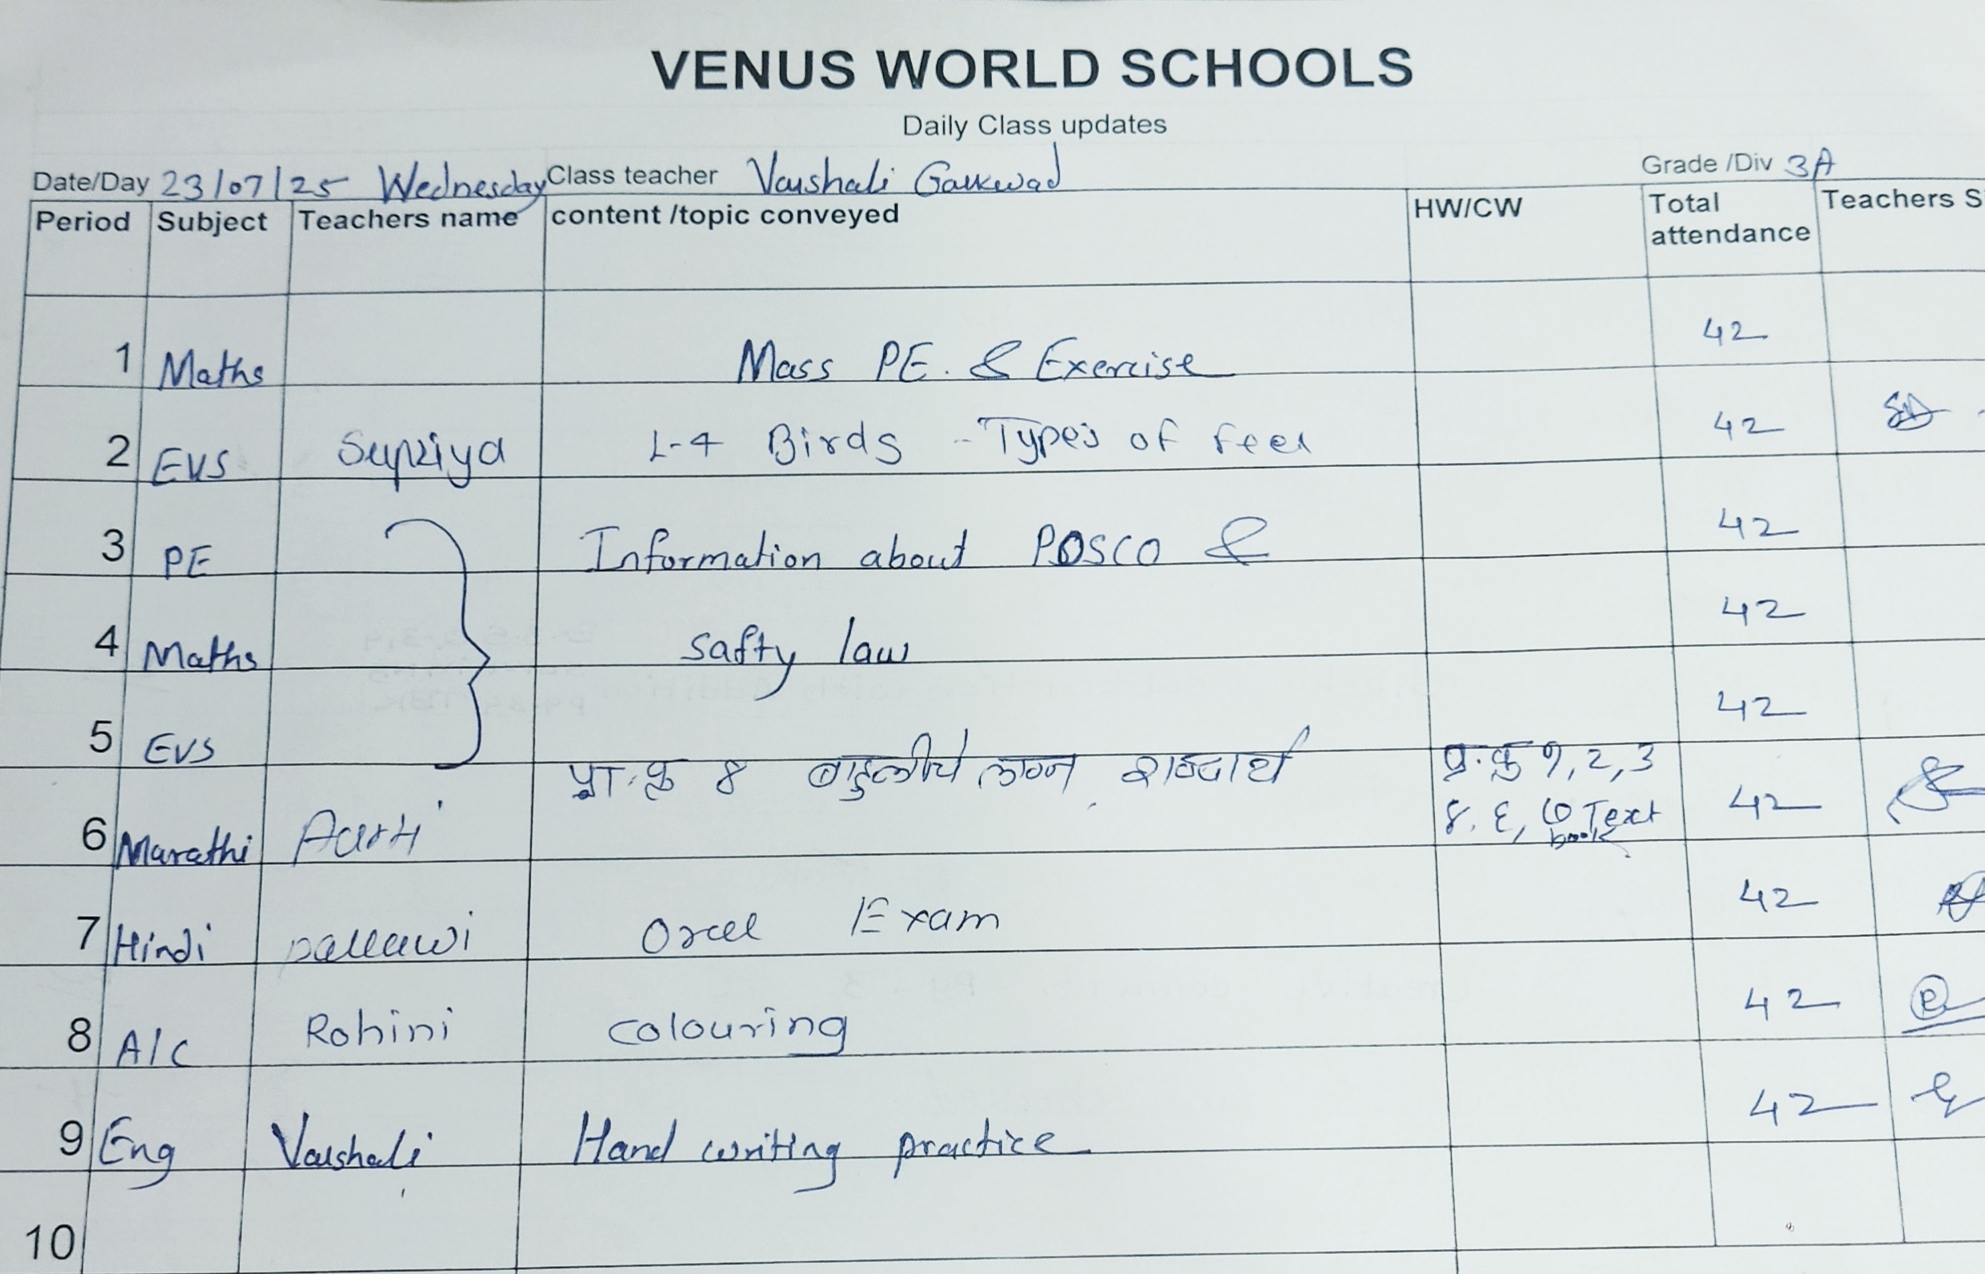 VENUS WORLD SCHOOLS
Daily Class updates
Date/Day 23/07/25 Wednesday Class teacher Vaishali Gaikwad Grade /Div 3A
Period Subject Teachers name content /topic conveyed HW/CW Total attendance Teachers S
1 Maths Mass PE. & Exercise 42
2 EVS Supriya L-4 Birds - Types of Feet 42
3 PE Information about POSCO & 42
4 Maths safty law 42
5 EVS 42
6 Marathi Aarti पा.क्र ४ बाहुलीचे लग्न शब्दार्थ प्र.क्र १, 2, 3 42
Text book
7 Hindi pallawi Oral Exam 42
8 A/C Rohini colouring 42
9 Eng Vaishali Hand writing practice 42
10